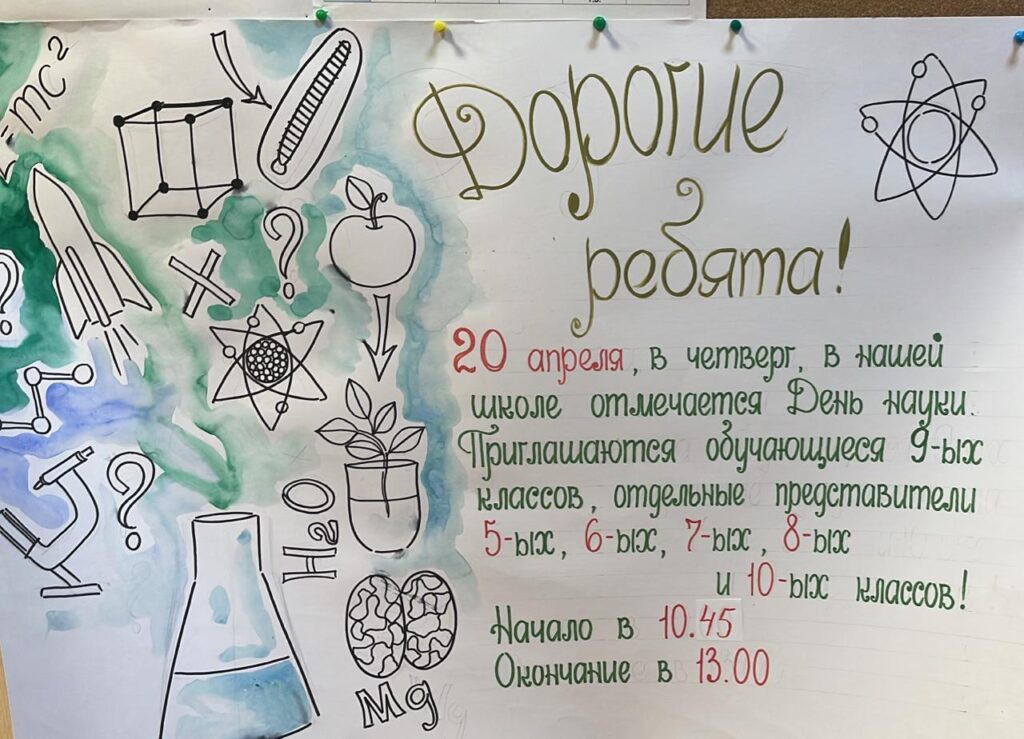 =mc²
?
?
?
H₂O
Mg
Дорогие
ребята!
20 апреля, в четверг, в нашей
школе отмечается День науки.
Приглашаются обучающиеся 9-ых
классов, отдельные представители
5-ых, 6-ых, 7-ых, 8-ых
и 10-ых классов!
Начало в 10.45
Окончание в 13.00